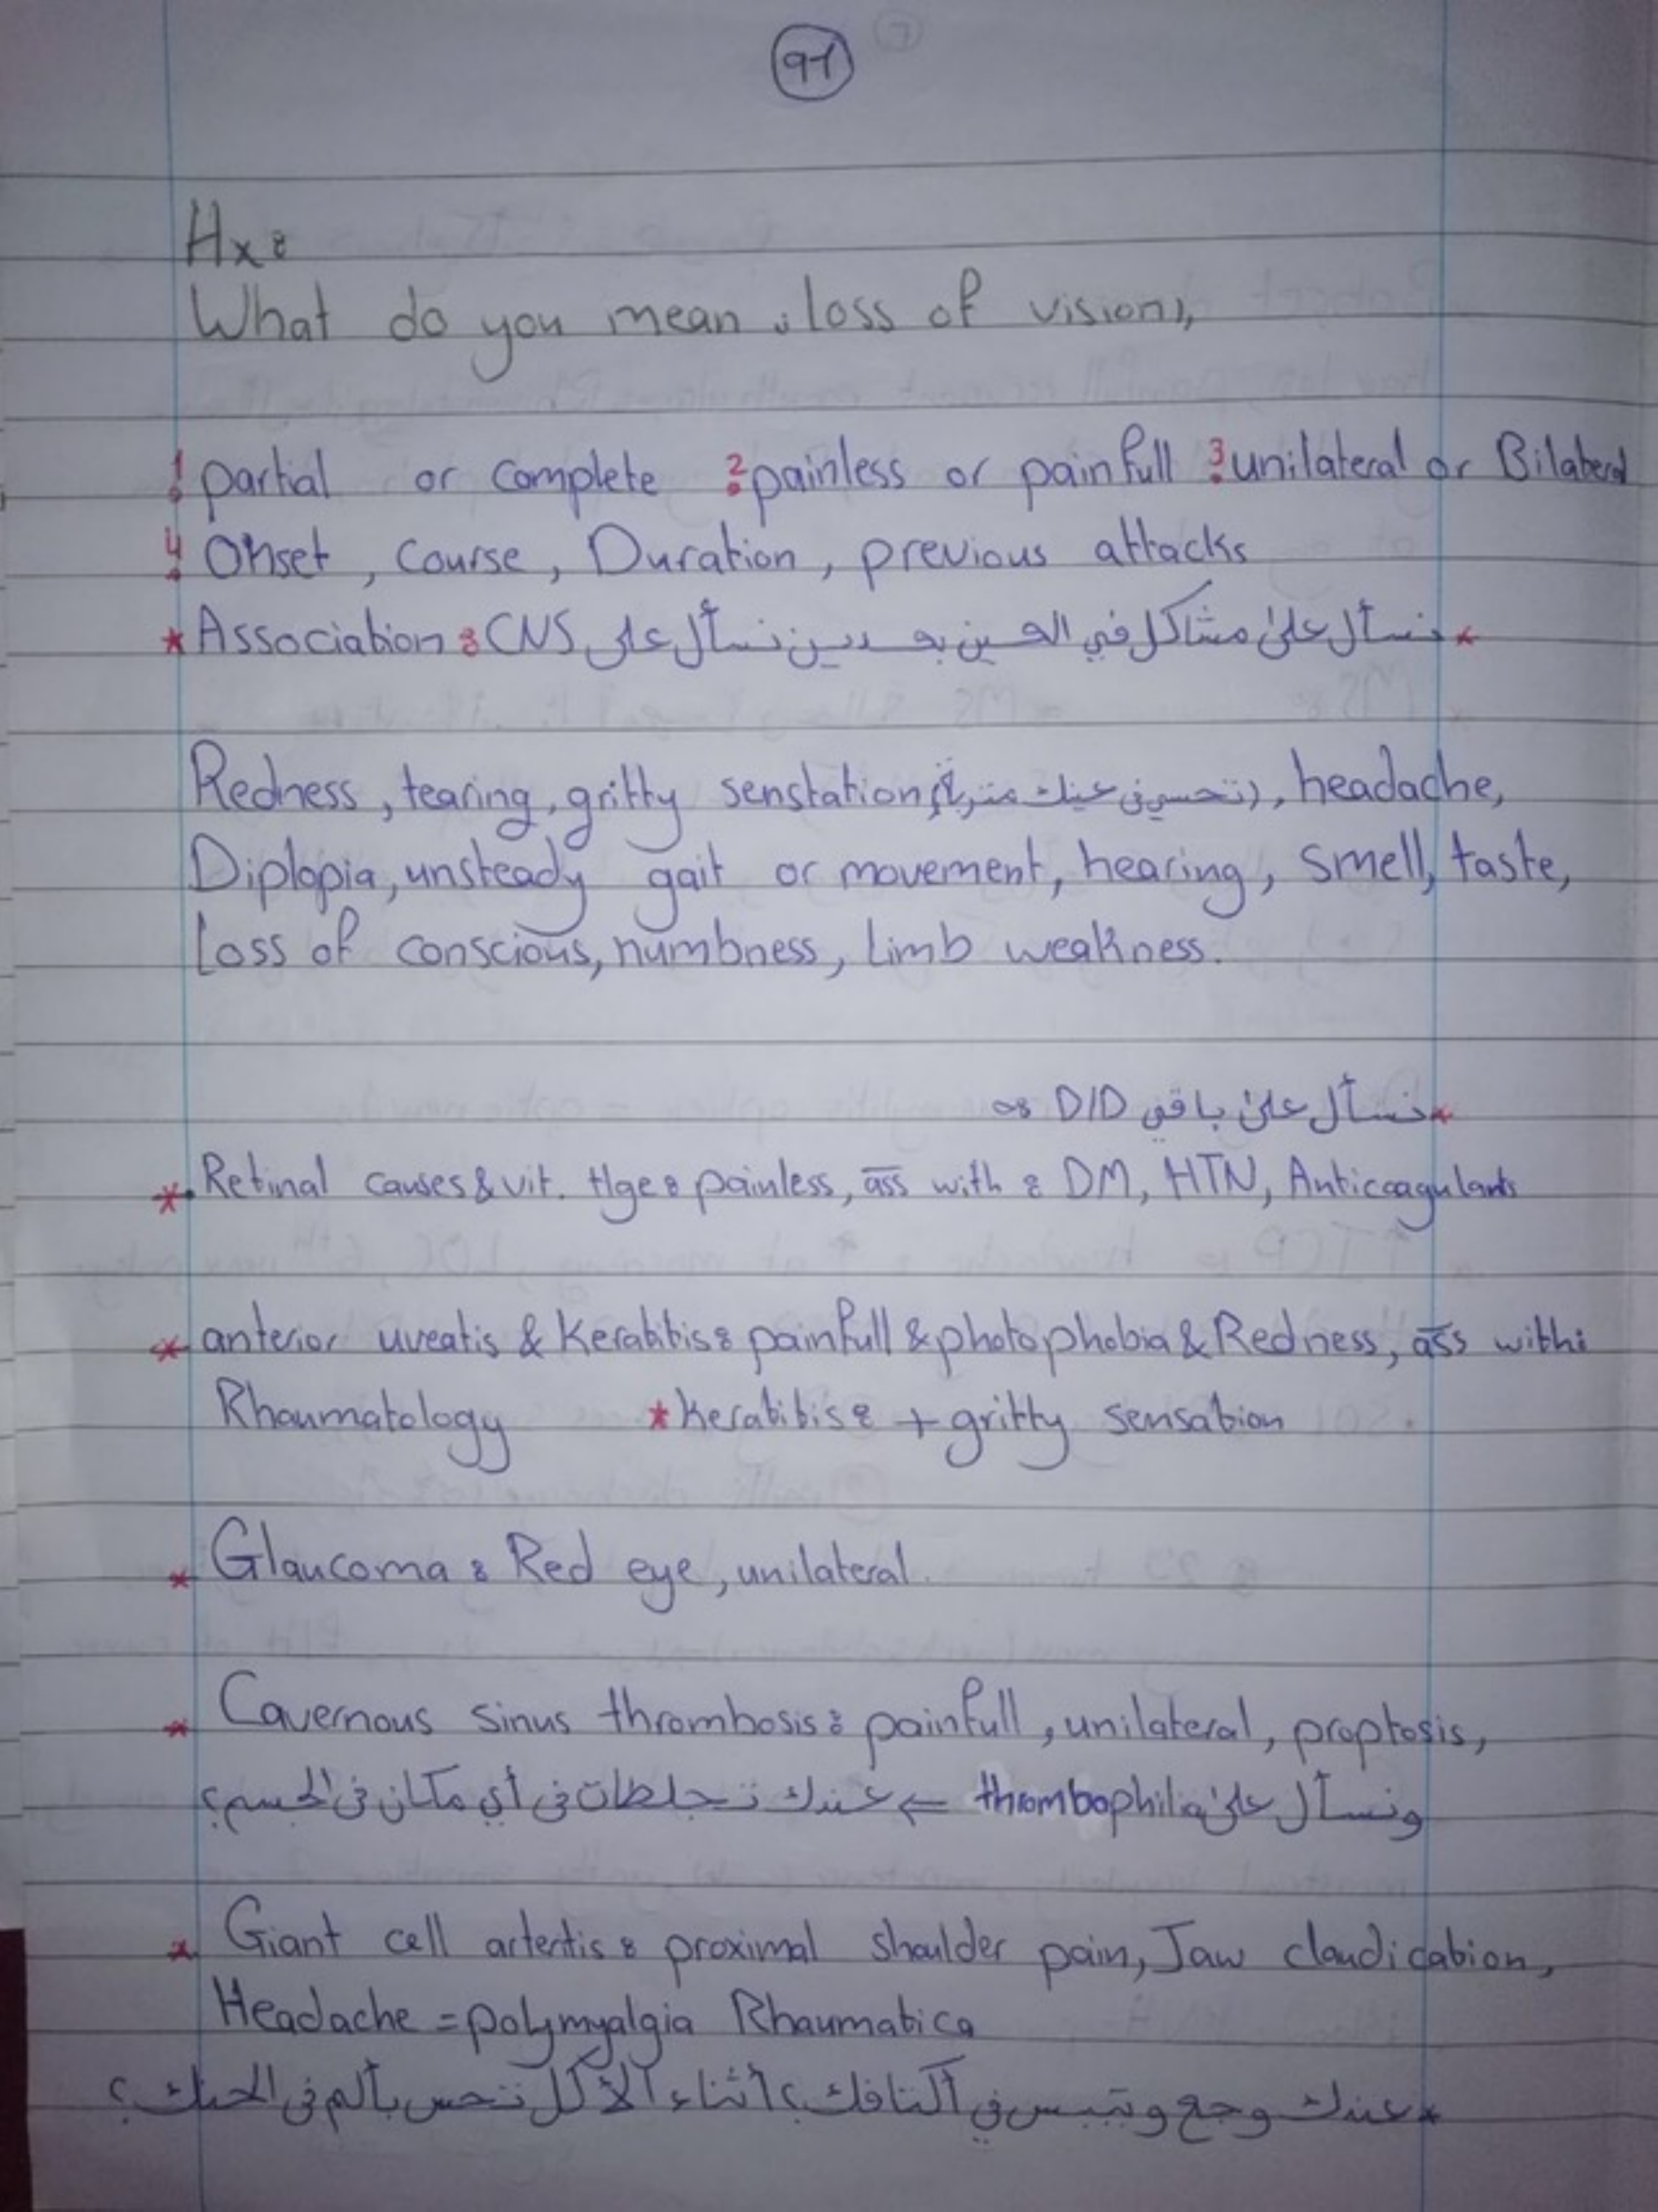 91
Hx:
What do you mean "loss of vision",
1: partial or complete 2: painless or painfull 3: unilateral or Bilateral
4: Onset, Course, Duration, previous attacks
* Association: CNS نسأل على مشاكل في العين بعدين نسأل على *
Redness, tearing, gritty senstation (تحسي في عينك متربة), headache,
Diplopia, unsteady gait or movement, hearing, smell, taste,
Loss of conscious, numbness, Limb weakness.
* نسأل على باقي D/D :-
* Retinal causes & vit. Hge: painless, ass with: DM, HTN, Anticoagulants
* anterior uveatis & Keratitis: painfull & photophobia & Redness, ass with:
Rhaumatology * Keratitis: + gritty sensation
* Glaucoma: Red eye, unilateral.
* Cavernous sinus thrombosis: painfull, unilateral, proptosis,
ونسأل على thrombophilia ⇐ عندك تجلطات في أي مكان في الجسم؟
* Giant cell artertis: proximal shoulder pain, Jaw claudication,
Headache = polymyalgia Rhaumatica
* عندك وجع وتيبس في أكتافك؟ أثناء الأكل تحس بألم في الحنك؟